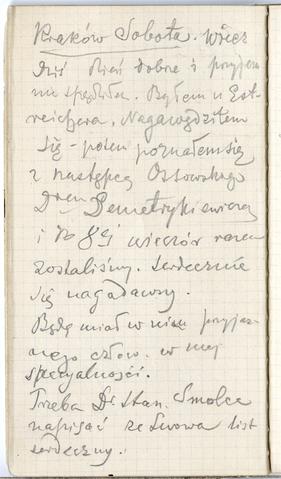 Kraków Sobota. Więc
Dziś dzień dobrze i przyjem
nie spędziłem. Byłem u Est-
reichera. Nagawędziłem
się - potem poznałem się
z następcą Ossowskiego
Drem Demetrykiewiczem
i do 8ej wieczór razem
zostaliśmy. Serdecznie
się nagadawszy.
Będę miał w nim przyjaz-
nego człow. w mej
specyalności.
Trzeba Dr. Stan. Smolce
napisać ze Lwowa list
serdeczny.